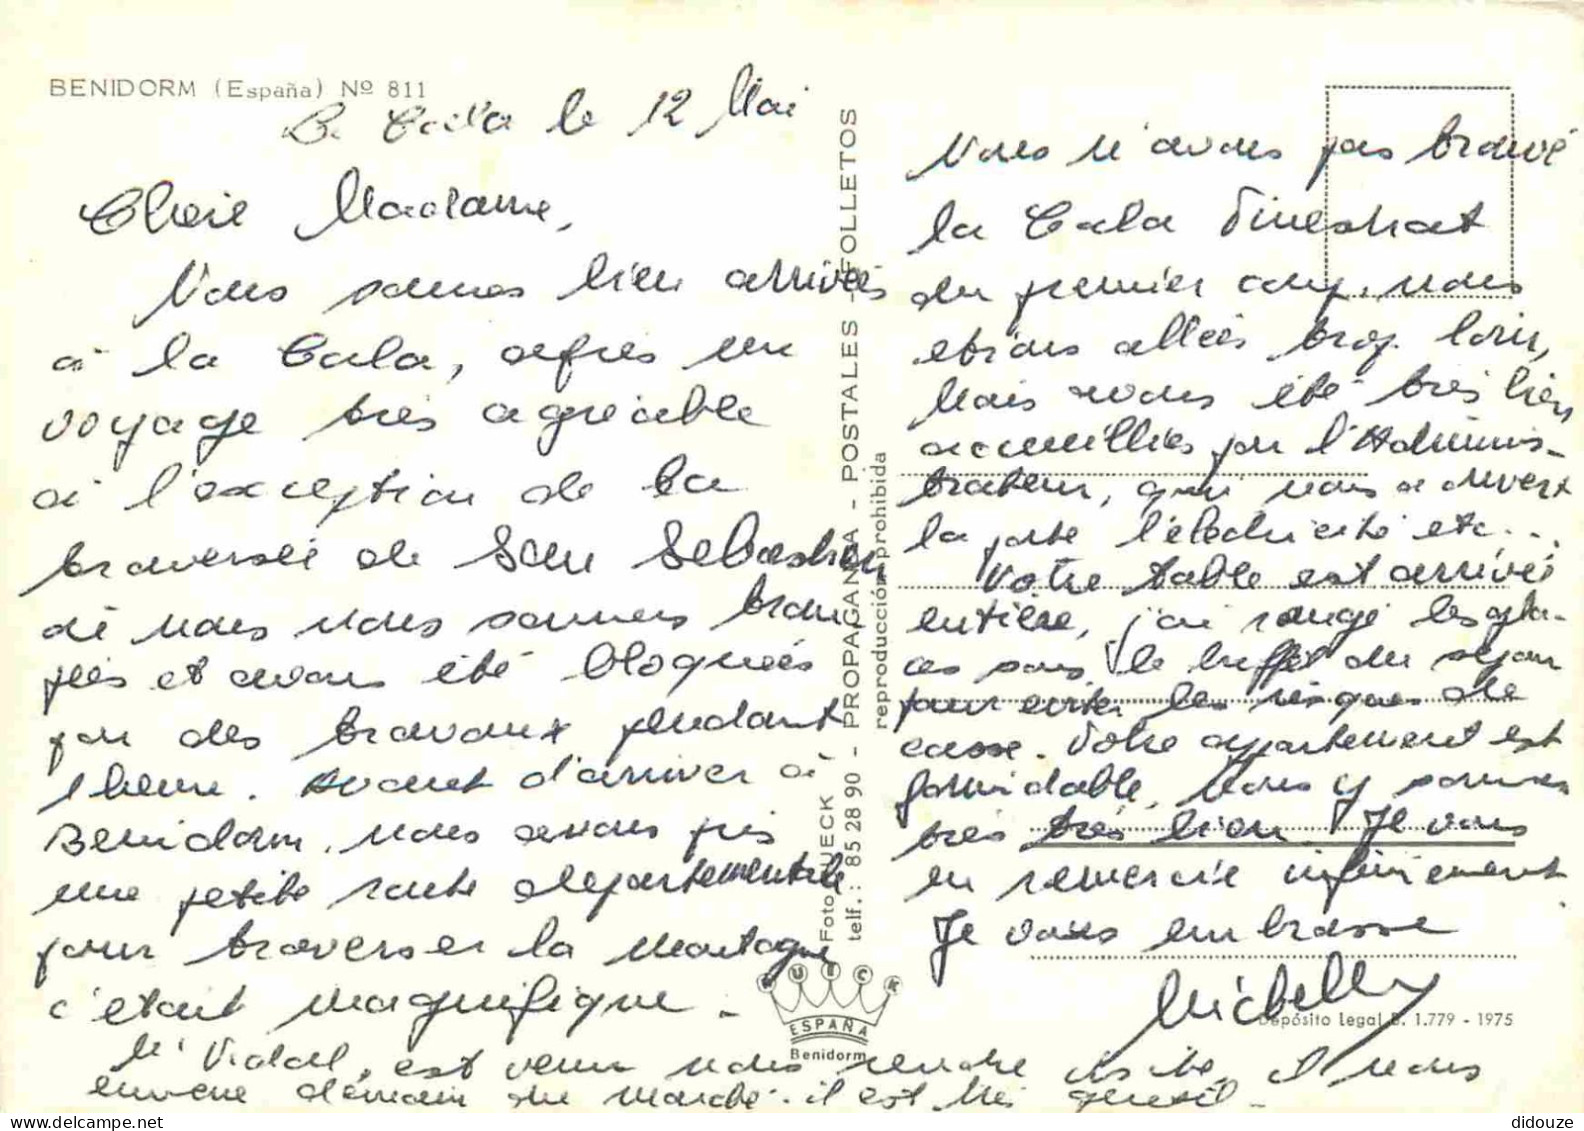 BENIDORM (España) Nº 811
La Cala le 12 Mai
Chère Madame,
Nous sommes bien arrivés
à la Cala, après un
voyage très agréable
à l'exception de la
traversée de San Sebastien
où nous nous sommes trom
pées et avons été bloquées
par des travaux pendant
1 heure. Avant d'arriver à
Benidorm, nous avons pris
une petite route départementale
pour traverser la montagne
c'était magnifique.
Mr Vidal, est venu nous rendre visite, il nous
emmène demain au marché. il est très gentil.
Nous n'avons pas trouvé
la Cala Finestrat
du premier coup, nous
étions allées trop loin,
Mais avons été très bien
accueillies par l'Adminis-
trateur, qui nous a ouvert
la porte l'électricité etc...
Votre table est arrivée
entière, j'ai rangé les gla-
ces sous le buffet du séjour
pour éviter les risques de
casse. Votre appartement est
formidable, nous y sommes
très très bien. Je vous
en remercie infiniment.
Je vous embrasse
Michelly
Foto QUECK - PROPAGANDA - POSTALES - FOLLETOS
telf.: 85 28 90
reproducción prohibida
QUECK
ESPAÑA
Benidorm
Depósito Legal B. 1.779 - 1975
didouze